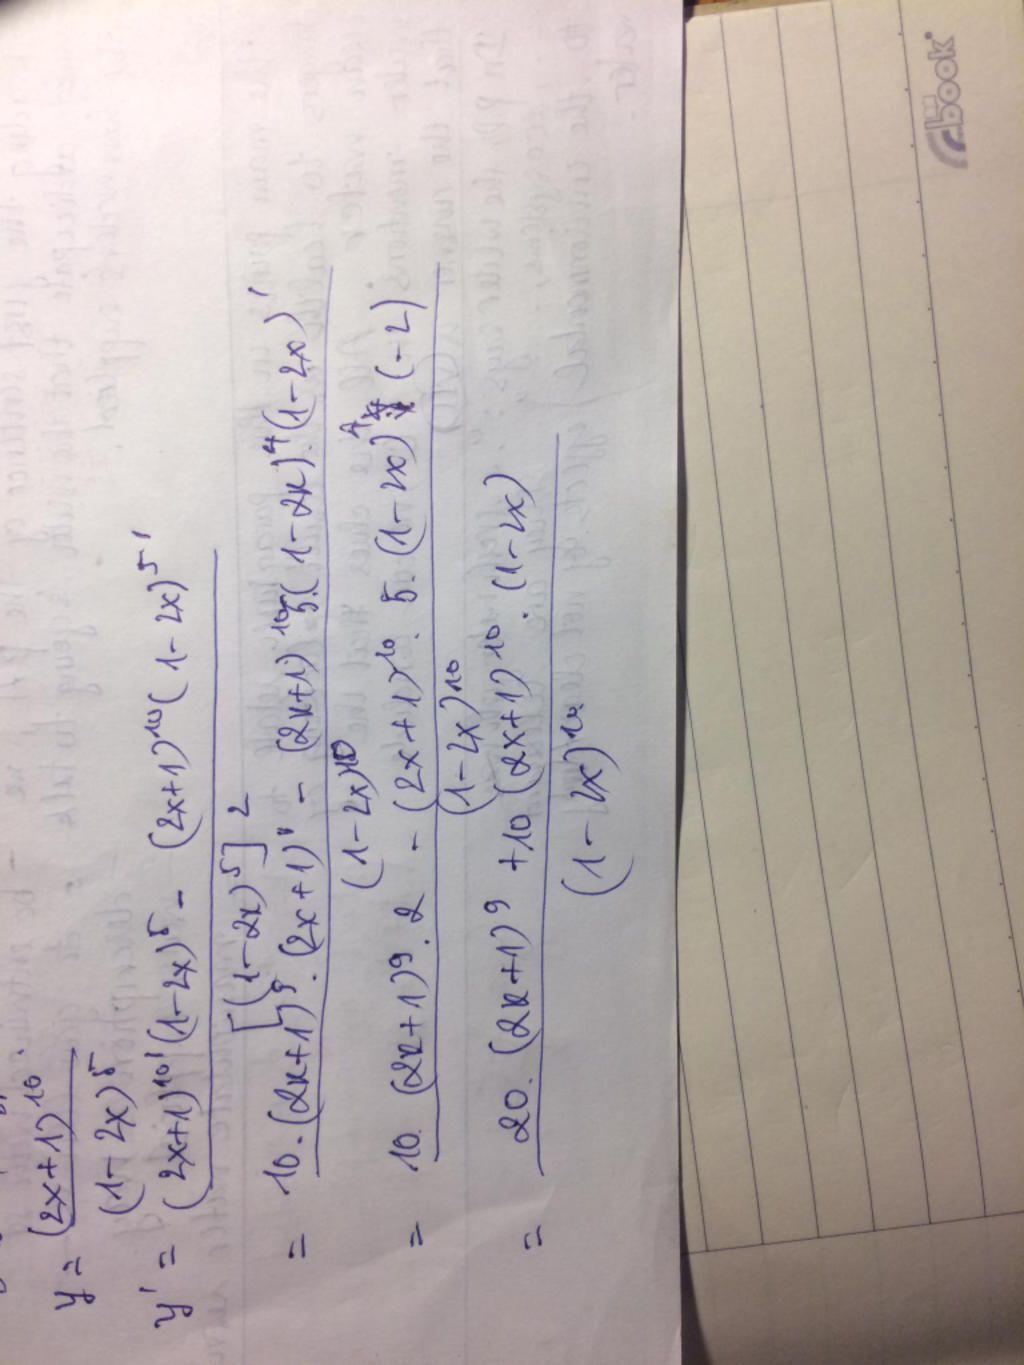 y = (2x+1)^10 / (1-2x)^5
y' = (2x+1)^10' (1-2x)^5 - (2x+1)^10 (1-2x)^5' / [(1-2x)^5]^2
= 10.(2x+1)^9.(2x+1)' - (2x+1)^10 5.(1-2x)^4 (1-2x)' / (1-2x)^10
= 10. (2x+1)^9. 2 - (2x+1)^10. 5. (1-2x)^4 (-2) / (1-2x)^10
= 20. (2x+1)^9 +10 (2x+1)^10. (1-2x) / (1-2x)^10.
book